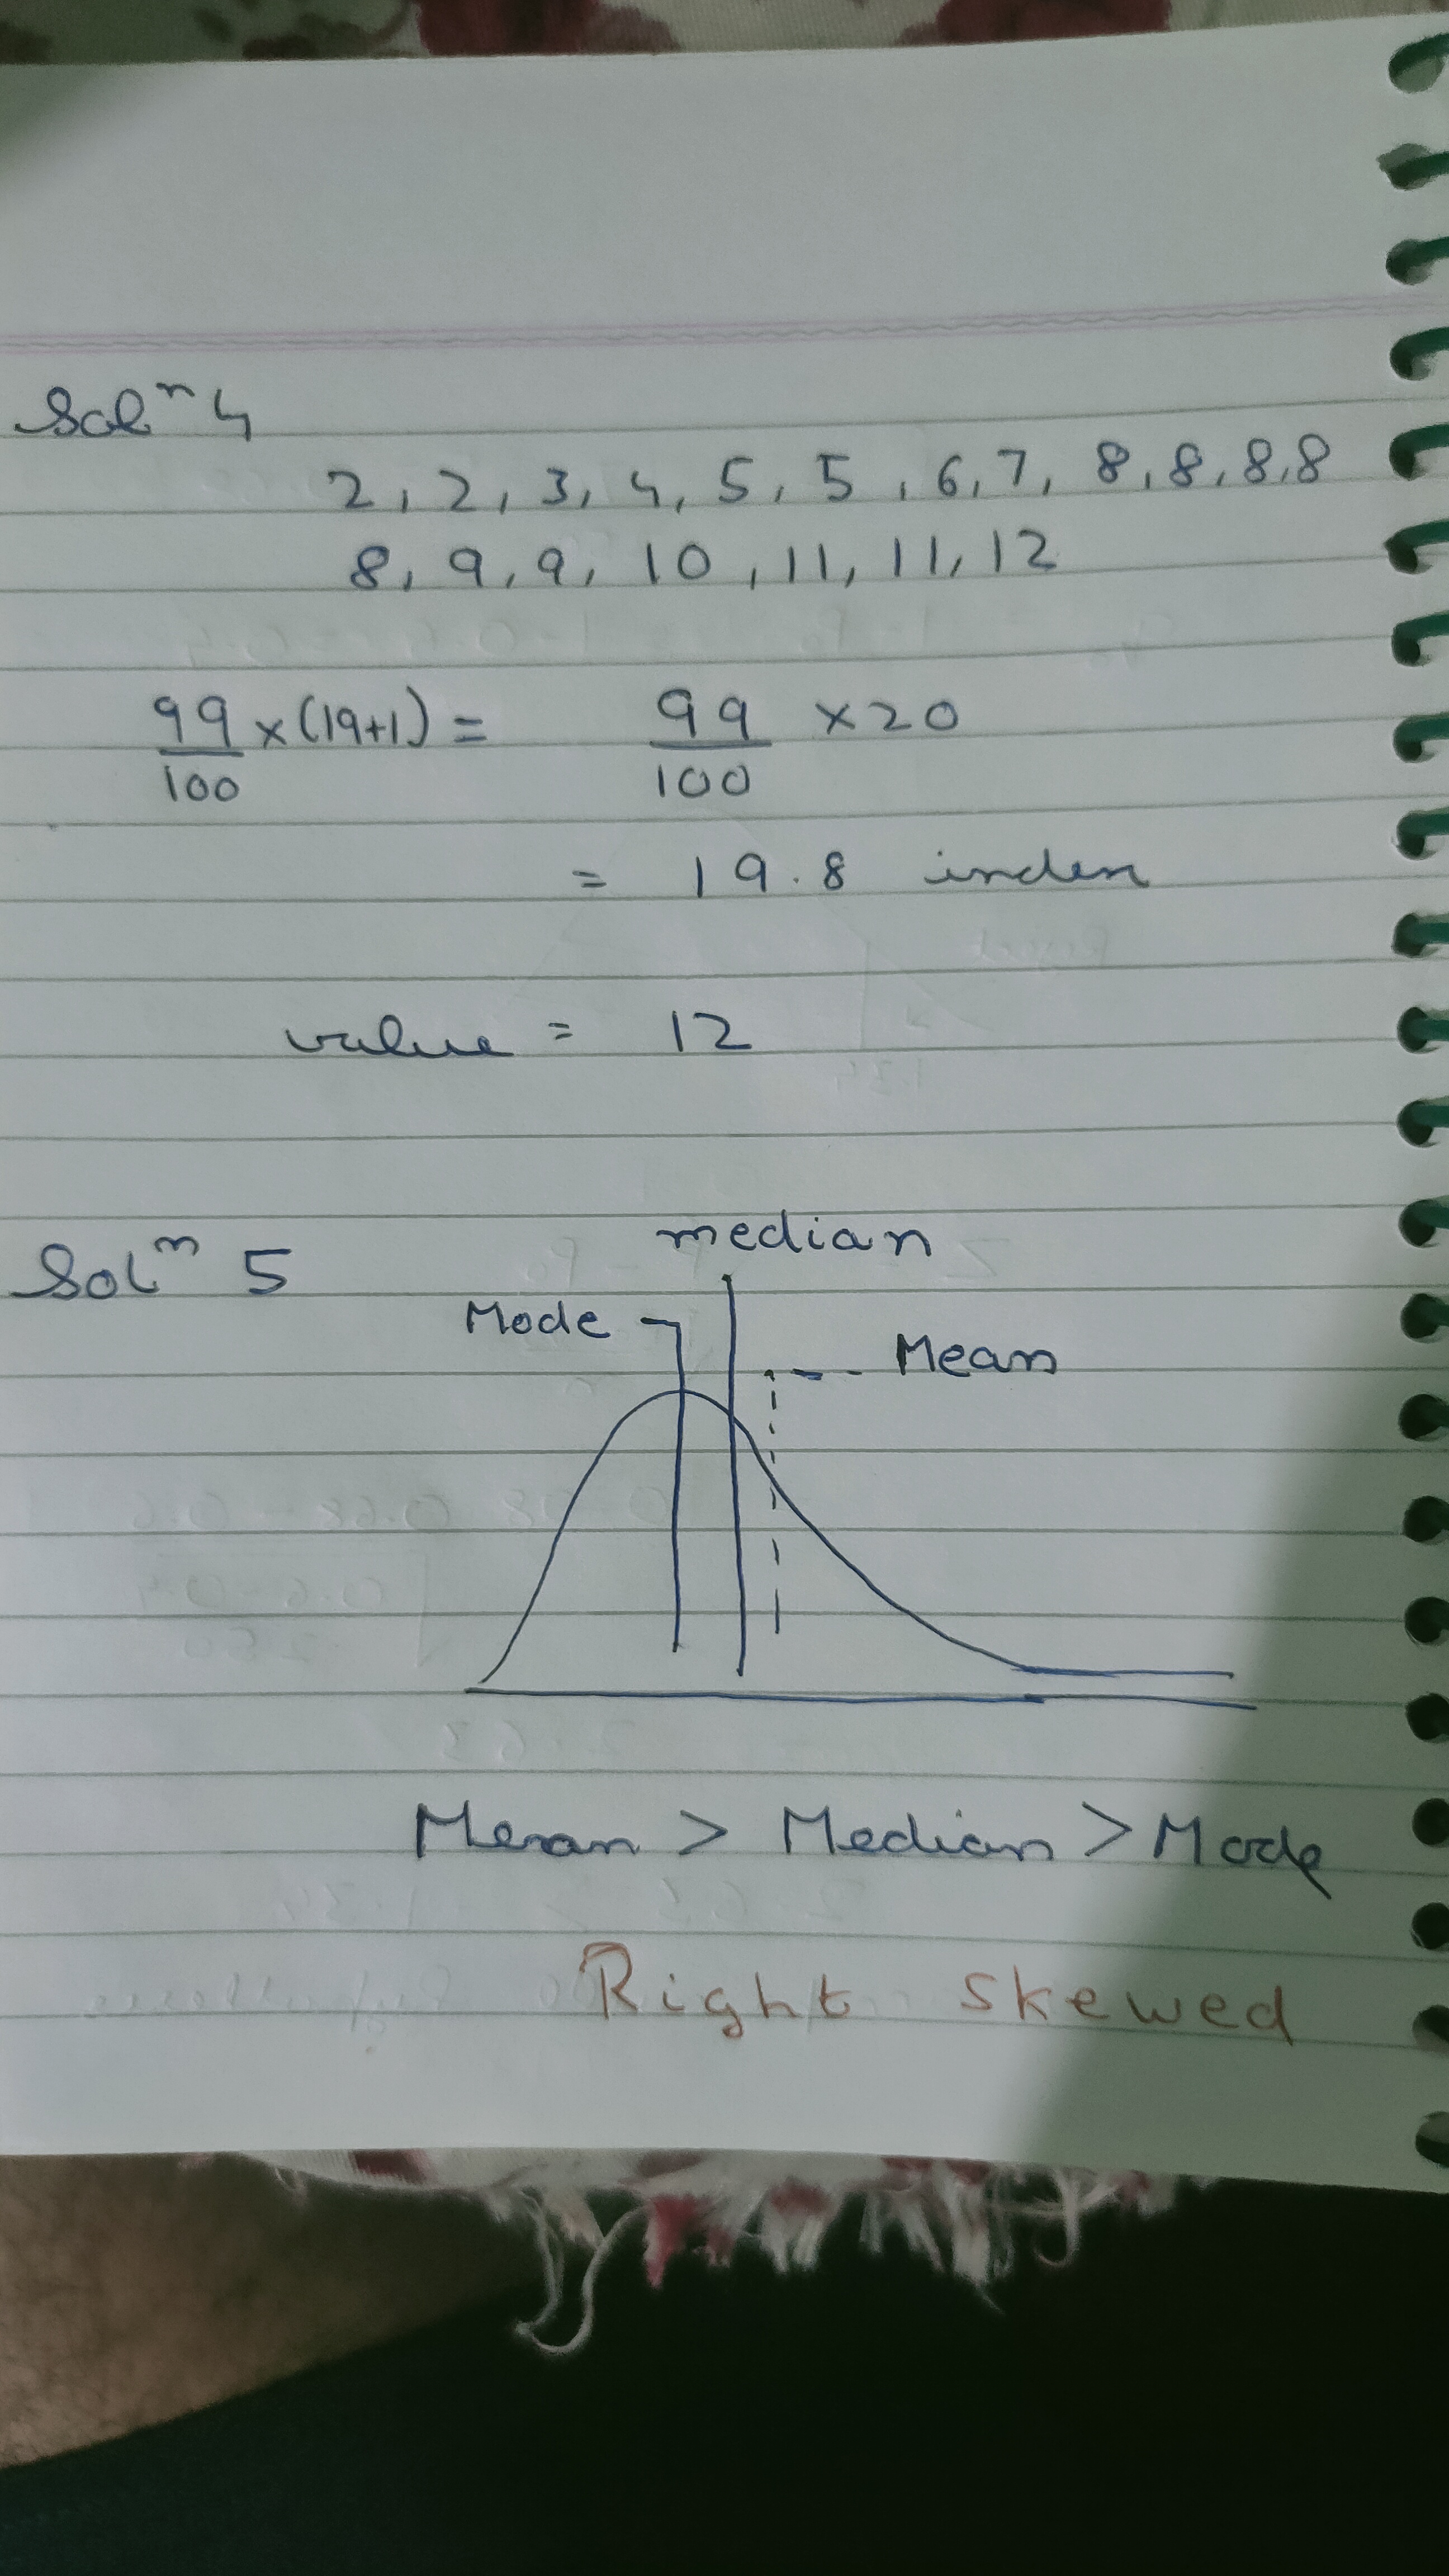 Solⁿ 4
2, 2, 3, 4, 5, 5, 6, 7, 8, 8, 8, 8
8, 9, 9, 10, 11, 11, 12
99/100 x (19+1) = 99/100 x 20
= 19.8 index
value = 12
Solⁿ 5
median
Mode
Mean
Mean > Median > Mode
Right skewed